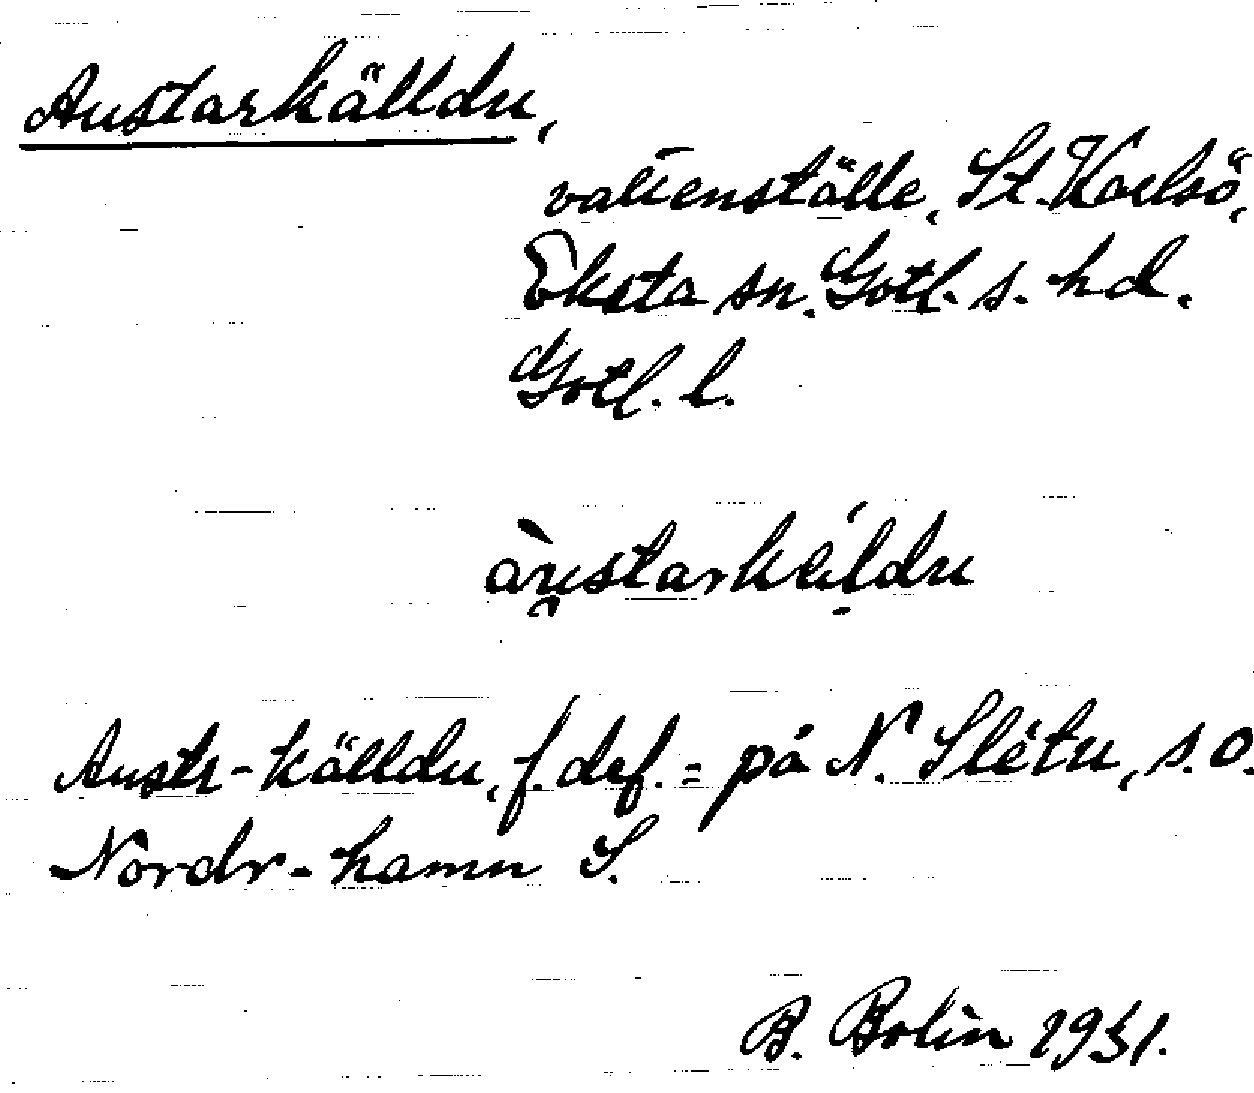 Austarkälldu,
vattenställe, St. Karlsö,
Eksta sn. Gotl. s. hd.
Gotl. l.
Austr-källdu, f. def. = på N. Slétu, s.o.
Nordr-hamn S.
B. Bolin 1931.